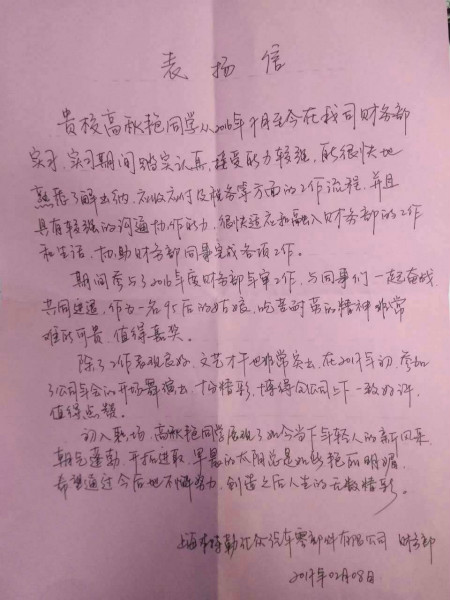 表扬信
贵校高秋艳同学从2016年9月至今在我司财务部
实习,实习期间踏实认真,接受能力较强,能很快地
熟悉了解出纳、应收应付及税务等方面的工作流程,并且
具有较强的沟通协作能力,很快适应和融入财务部的工作
和生活,协助财务部同事完成各项工作。
期间参与了2016年度财务部年审工作,与同事们一起奋战
共同进退,作为一名95后的姑娘,吃苦耐劳的精神非常
难能可贵,值得嘉奖。
除了工作表现良好,文艺才干也非常突出,在2017年初,参加
了公司年会的开场舞演出,十分精彩,博得公司上下一致好评,
值得点赞。
初入职场,高秋艳同学展现了如今当下年轻人的新风采,
朝气蓬勃,开拓进取,早晨的太阳总是如此艳丽明媚,
希望通过今后她不懈努力,创造之后人生的无数精彩。
上海 汇众汽车零部件有限公司 财务部
2017年02月08日